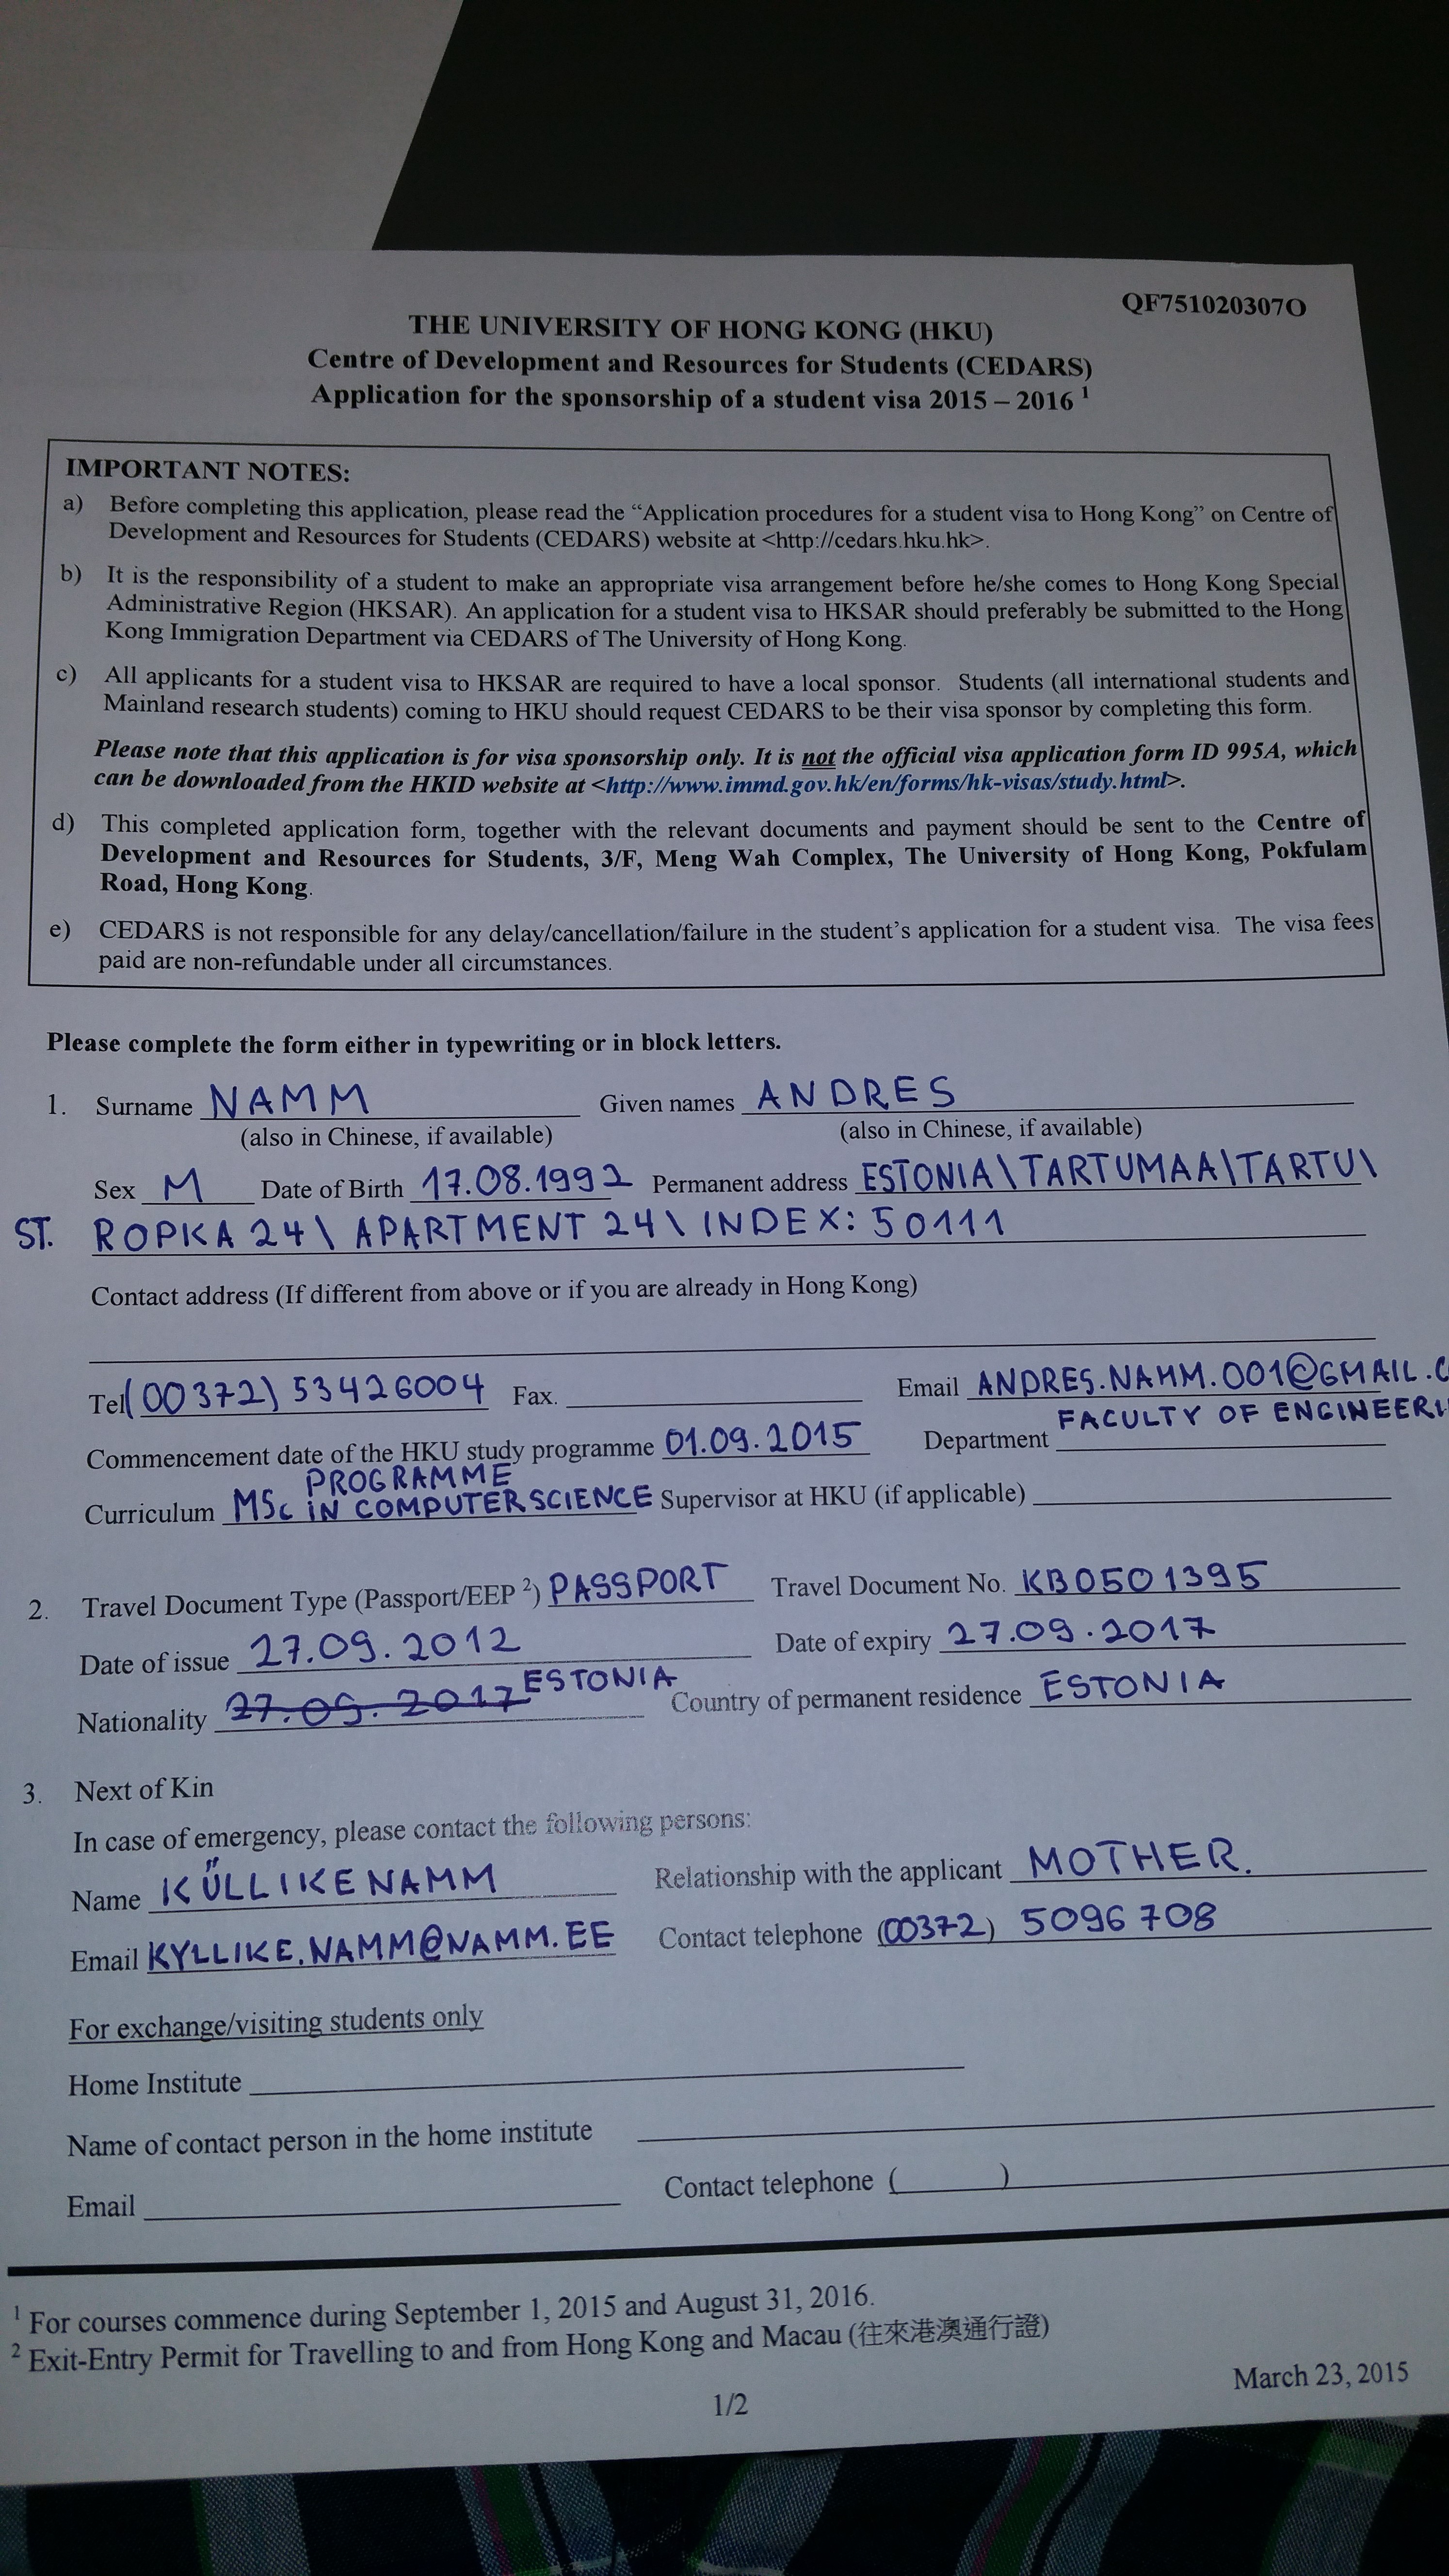 QF751020307O
THE UNIVERSITY OF HONG KONG (HKU)
Centre of Development and Resources for Students (CEDARS)
Application for the sponsorship of a student visa 2015 – 2016 ¹
IMPORTANT NOTES:
a) Before completing this application, please read the “Application procedures for a student visa to Hong Kong” on Centre of
Development and Resources for Students (CEDARS) website at <http://cedars.hku.hk>.
b) It is the responsibility of a student to make an appropriate visa arrangement before he/she comes to Hong Kong Special
Administrative Region (HKSAR). An application for a student visa to HKSAR should preferably be submitted to the Hong
Kong Immigration Department via CEDARS of The University of Hong Kong.
c) All applicants for a student visa to HKSAR are required to have a local sponsor. Students (all international students and
Mainland research students) coming to HKU should request CEDARS to be their visa sponsor by completing this form.
Please note that this application is for visa sponsorship only. It is not the official visa application form ID 995A, which
can be downloaded from the HKID website at <http://www.immd.gov.hk/en/forms/hk-visas/study.html>.
d) This completed application form, together with the relevant documents and payment should be sent to the Centre of
Development and Resources for Students, 3/F, Meng Wah Complex, The University of Hong Kong, Pokfulam
Road, Hong Kong.
e) CEDARS is not responsible for any delay/cancellation/failure in the student’s application for a student visa. The visa fees
paid are non-refundable under all circumstances.
Please complete the form either in typewriting or in block letters.
1. Surname NAMM Given names ANDRES
(also in Chinese, if available) (also in Chinese, if available)
Sex M Date of Birth 17.08.1992 Permanent address ESTONIA\TARTUMAA\TARTU\
ST. ROPKA 24\ APARTMENT 24\ INDEX: 50111
Contact address (If different from above or if you are already in Hong Kong)
Tel (00372) 53426004 Fax. Email ANDRES.NAMM.001@GMAIL.C
FACULTY OF ENGINEERI
Commencement date of the HKU study programme 01.09.2015 Department
PROGRAMME
Curriculum MSc IN COMPUTER SCIENCE Supervisor at HKU (if applicable)
2. Travel Document Type (Passport/EEP ²) PASSPORT Travel Document No. KB0501395
Date of issue 27.09.2012 Date of expiry 27.09.2017
Nationality 27.09.2017 ESTONIA Country of permanent residence ESTONIA
3. Next of Kin
In case of emergency, please contact the following persons:
Name KÜLLIKE NAMM Relationship with the applicant MOTHER.
Email KYLLIKE.NAMM@NAMM.EE Contact telephone (00372) 5096708
For exchange/visiting students only
Home Institute
Name of contact person in the home institute
Email Contact telephone ( )
¹ For courses commence during September 1, 2015 and August 31, 2016.
² Exit-Entry Permit for Travelling to and from Hong Kong and Macau (往來港澳通行證)
March 23, 2015
1/2